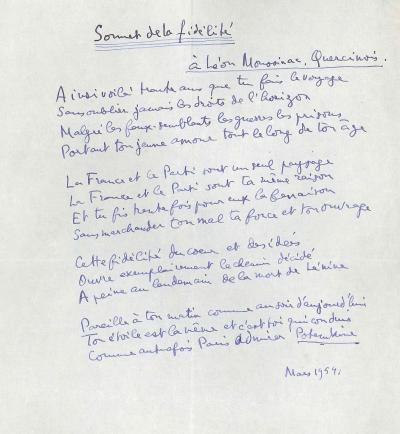 Sonnet de la fidélité
à Léon Moussinac, Quercinois.
Ainsi voilà trente ans que tu fais le voyage
Sans oublier jamais les droits de l'horizon
Malgré les faux-semblants les guerres les prisons
Portant ton jeune amour tout le long de ton âge
La France et le Parti sont un seul paysage
La France et le Parti sont ta même raison
Et tu fis trente fois pour eux la fenaison
Sans marchander ton mal ta force et ton ouvrage
Cette fidélité du coeur et des idées
Ouvre exemplairement le chemin décidé
A peine au lendemain de la mort de Lénine
Pareille à ton matin comme au soir d'aujourd'hui
Ton étoile est la même et c'est toi qui conduis
Comme autrefois Paris admirer Potemkine
Mars 1954.